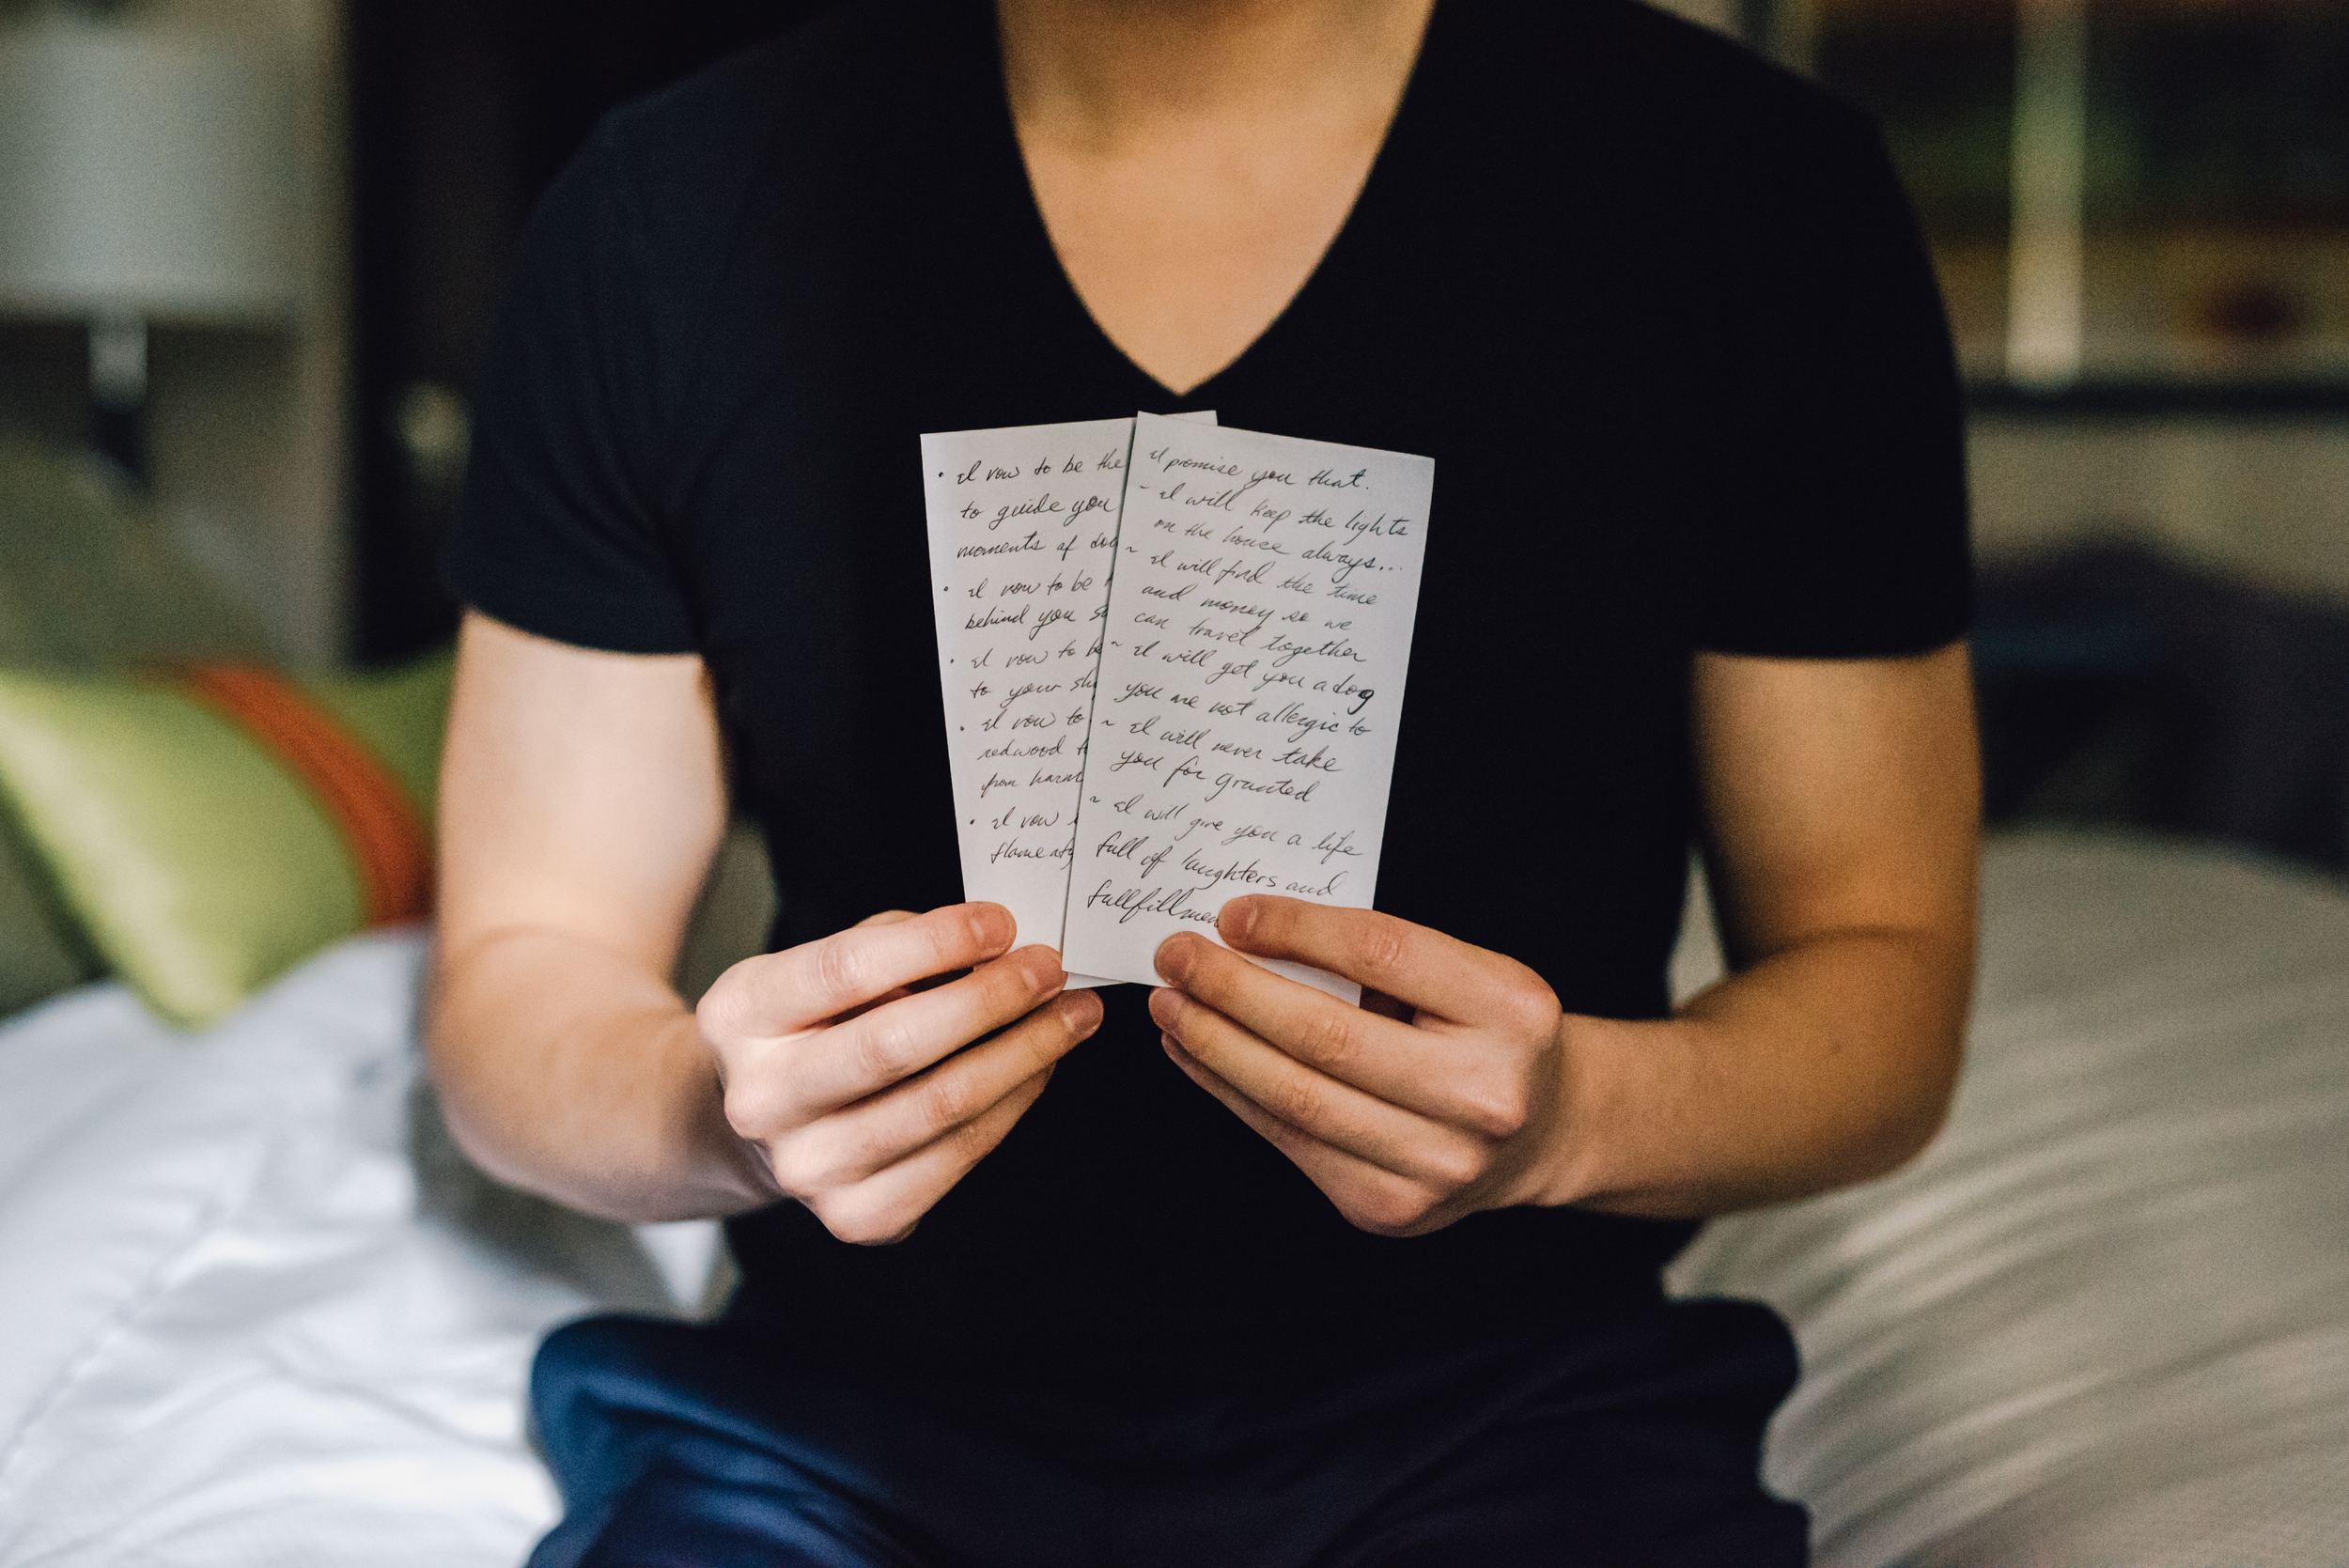 • I vow to be the
to guide you
moments of
• I vow to be
behind you
• I vow to be
to your
• I vow to
redwood
from harm
• I vow
flame
I promise you that.
~ I will keep the lights
on the house always...
~ I will find the time
and money so we
can travel together
~ I will get you a dog
you are not allergic to
~ I will never take
you for granted
~ I will give you a life
full of laughters and